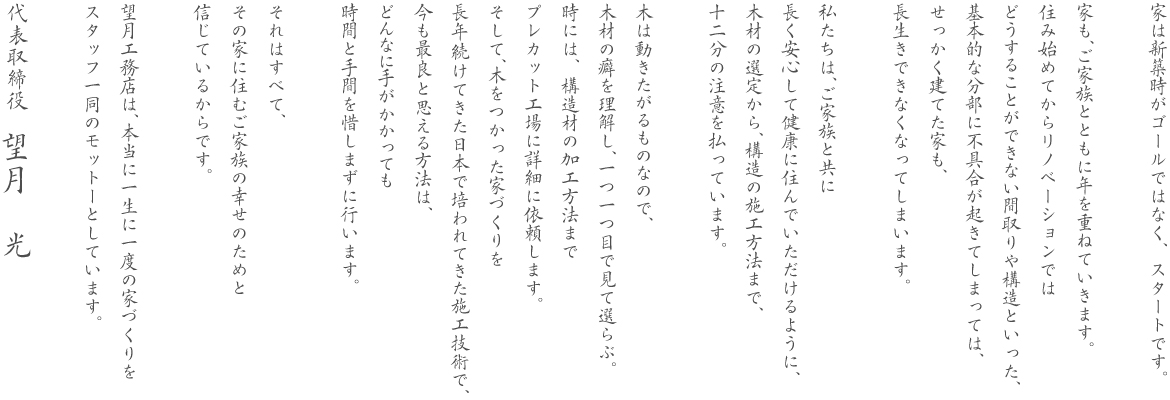 家は新築時がゴールではなく、スタートです。
家も、ご家族とともに年を重ねていきます。
住み始めてからリノベーションでは
どうすることができない間取りや構造といった、
基本的な分部に不具合が起きてしまっては、
せっかく建てた家も、
長生きできなくなってしまいます。
私たちは、ご家族と共に
長く安心して健康に住んでいただけるように、
木材の選定から、構造の施工方法まで、
十二分の注意を払っています。
木は動きたがるものなので、
木材の癖を理解し、一つ一つ目で見て選らぶ。
時には、構造材の加工方法まで
プレカット工場に詳細に依頼します。
そして、木をつかった家づくりを
長年続けてきた日本で培われてきた施工技術で、
今も最良と思える方法は、
どんなに手がかかっても
時間と手間を惜しまずに行います。
それはすべて、
その家に住むご家族の幸せのためと
信じているからです。
望月工務店は、本当に一生に一度の家づくりを
スタッフ一同のモットーとしています。
代表取締役 望月 光